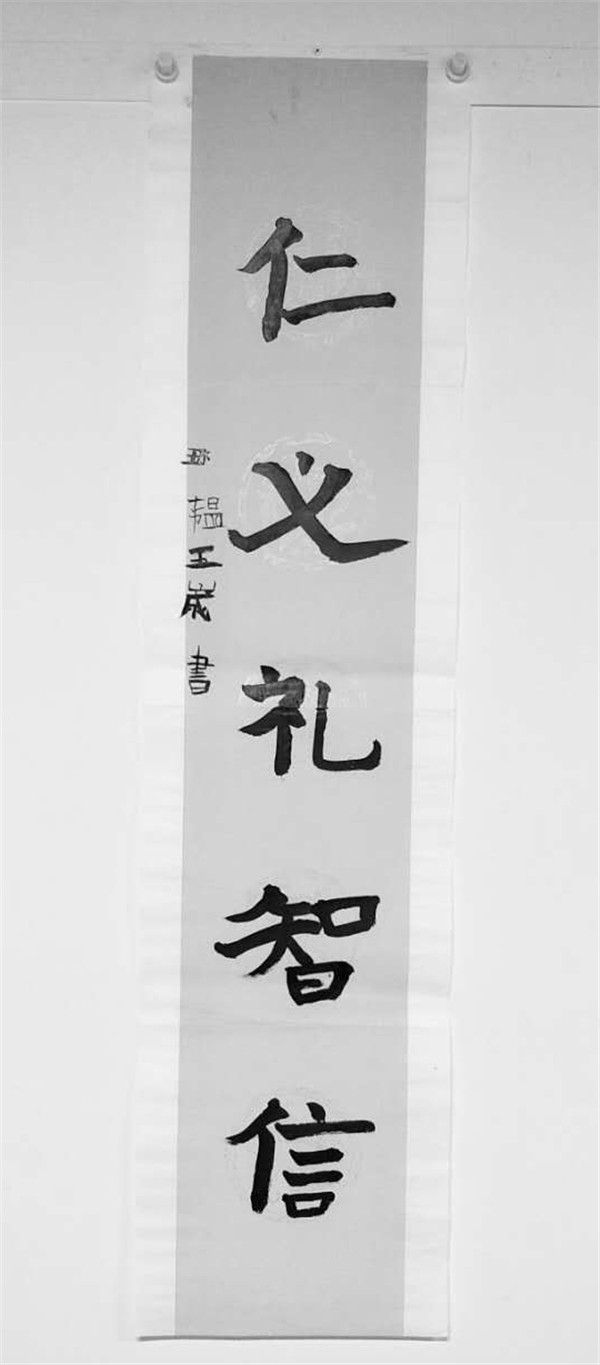 仁义礼智信
韫五岁書